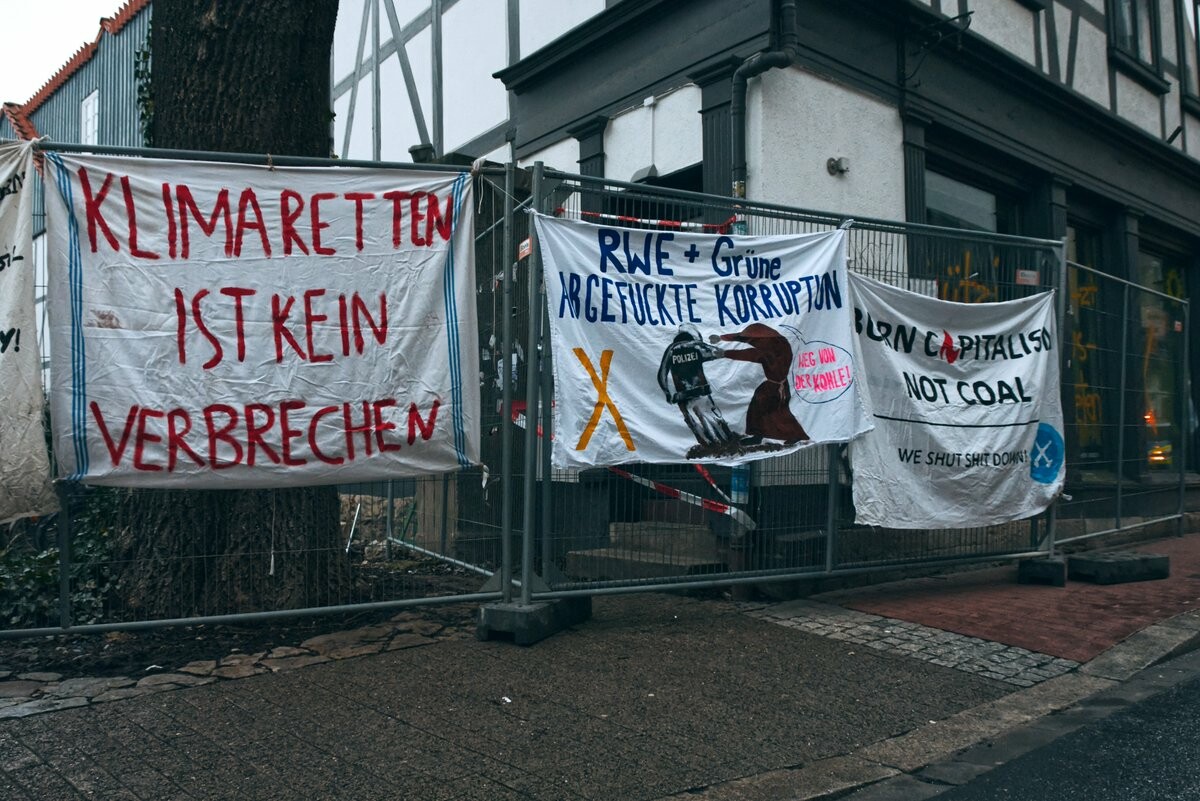 Y!
KLIMARETTEN
IST KEIN
VERBRECHEN
RWE + Grüne
ABGEFUCKTE KORRUPTION
X
POLIZEI
WEG VON
DER KOHLE!
BURN CAPITALISM
NOT COAL
WE SHUT SHIT DOWN!